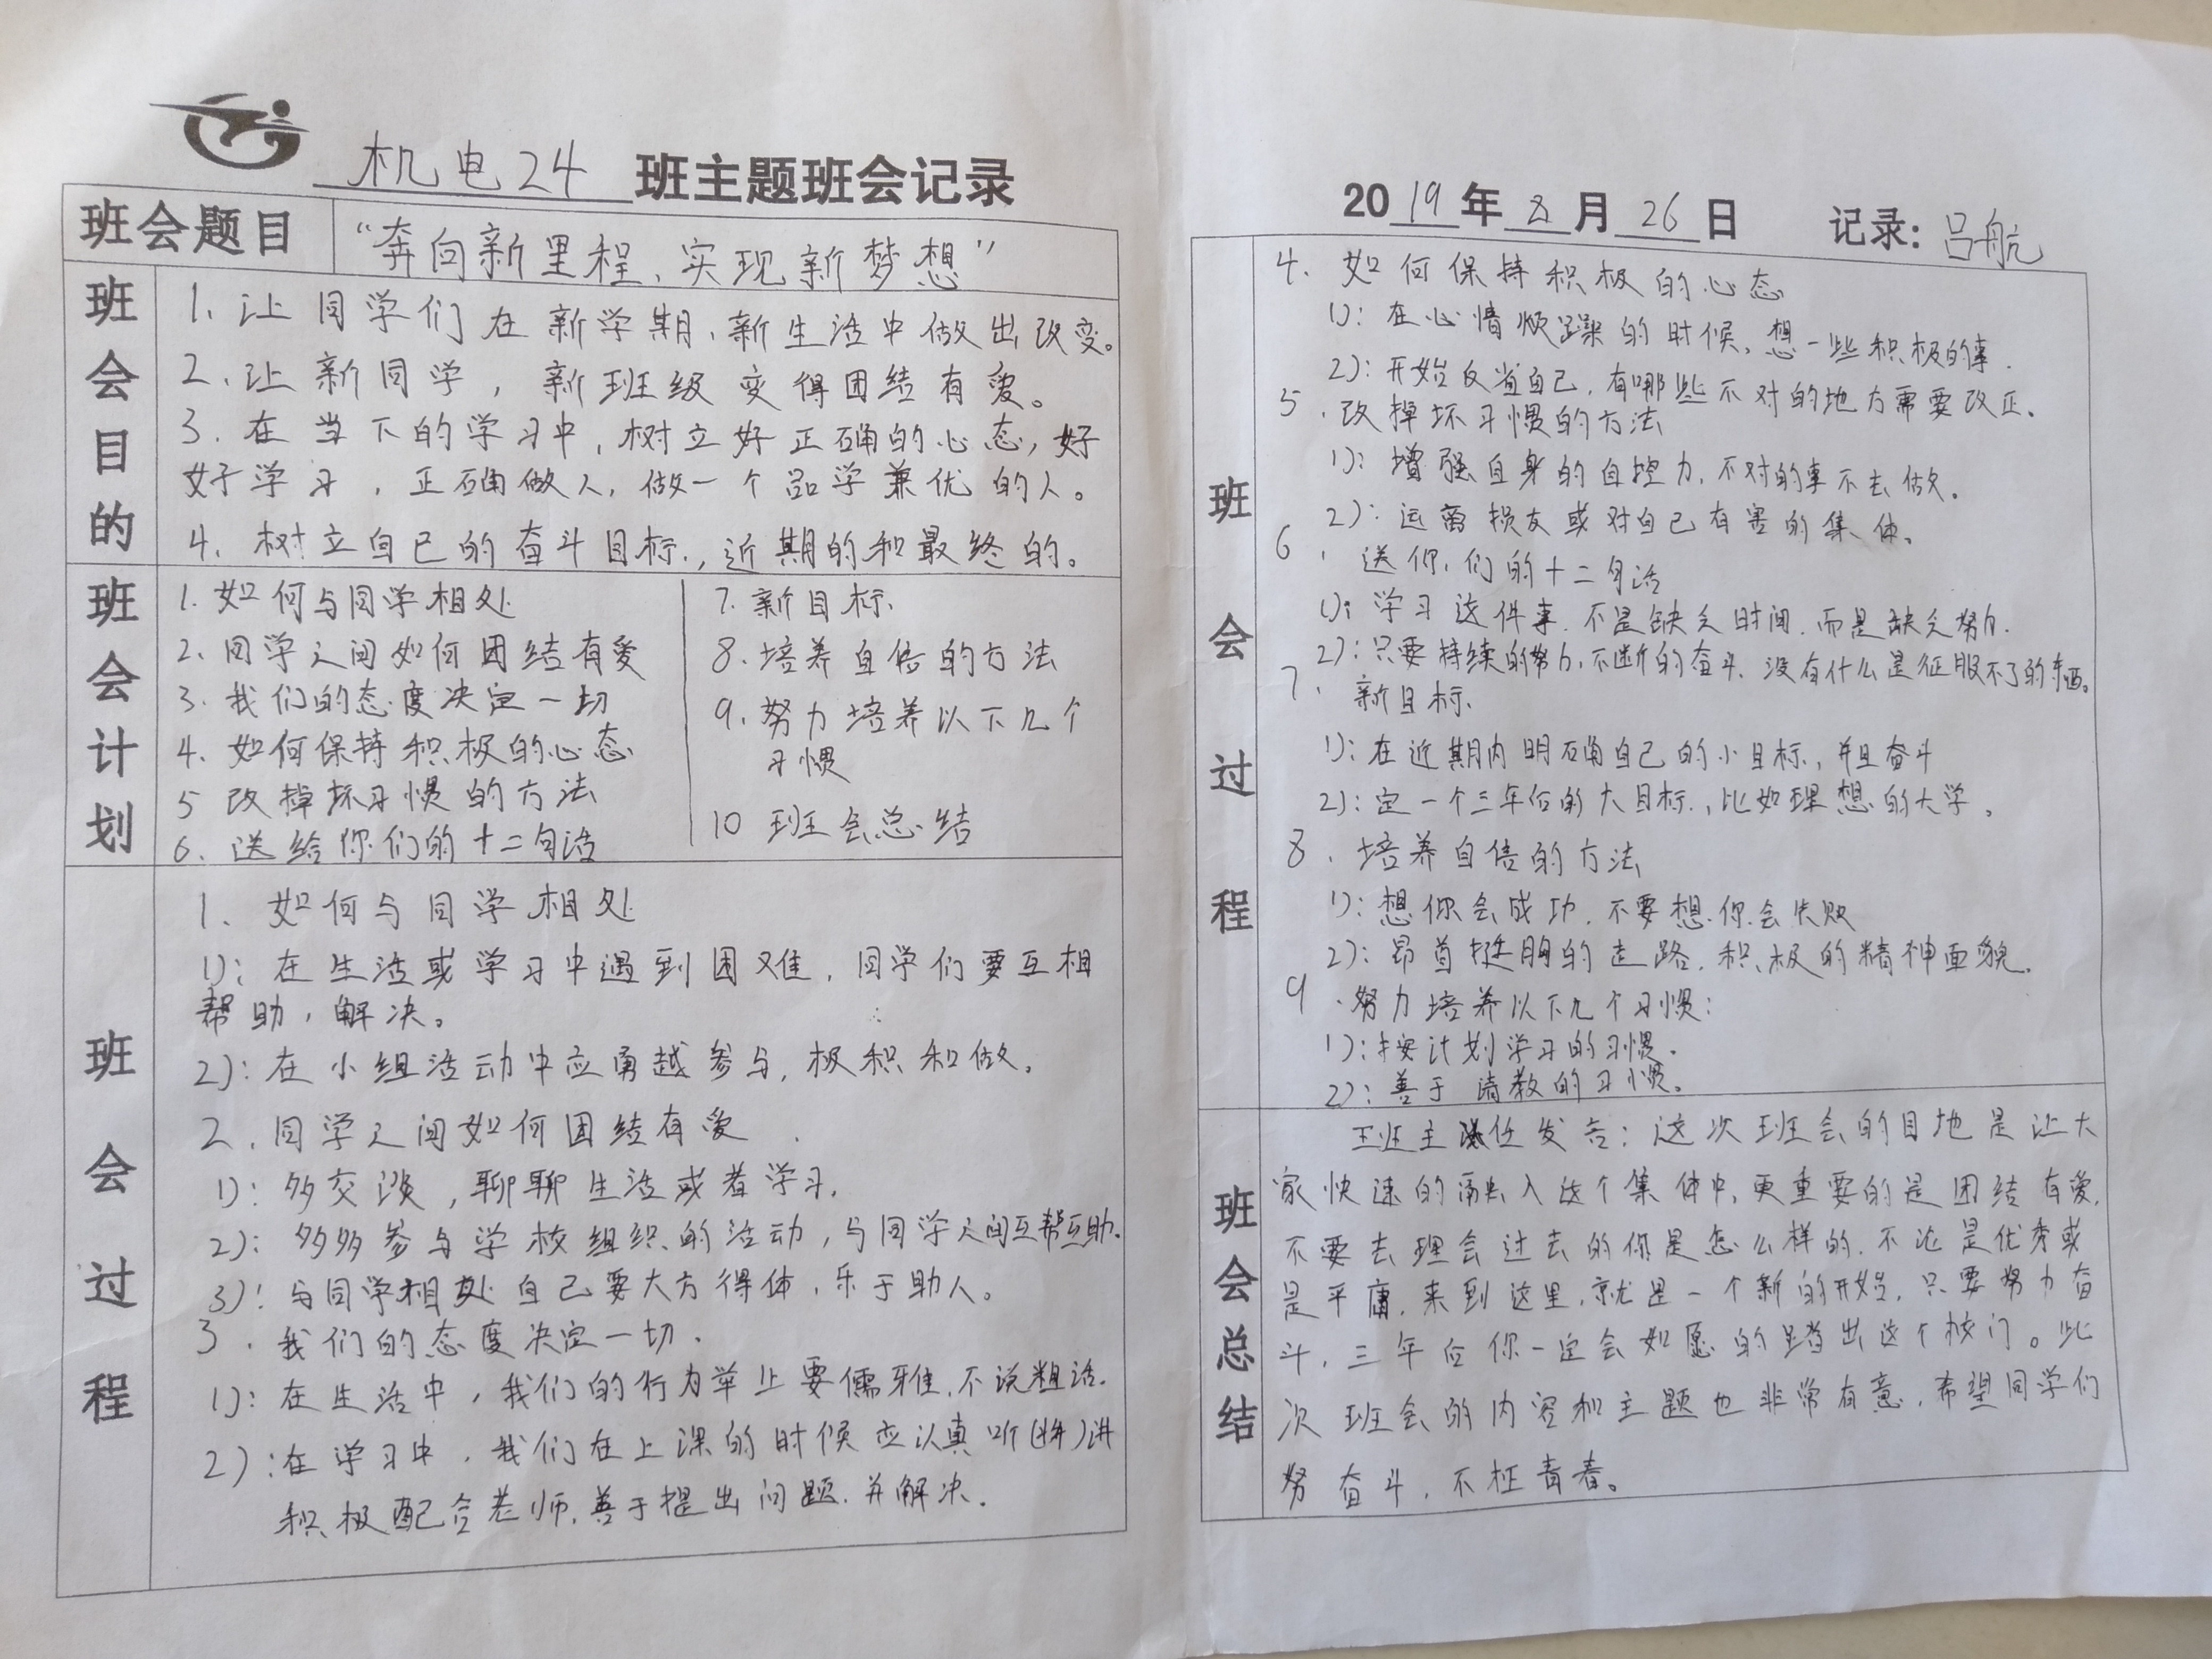 机电24 班主题班会记录
班会题目
“奔向新里程、实现新梦想”
班会目的
1、让同学们在新学期、新生活中做出改变。
2、让新同学，新班级变得团结有爱。
3、在当下的学习中，树立好正确的心态，好
好学习，正确做人，做一个品学兼优的人。
4、树立自己的奋斗目标，近期的和最终的。
班会计划
1、如何与同学相处
2、同学之间如何团结有爱
3、我们的态度决定一切
4、如何保持积极的心态
5 改掉坏习惯的方法
6、送给你们的十二句话
7、新目标
8、培养自信的方法
9、努力培养以下几个
习惯
10 班会总结
班会过程
1、如何与同学相处
1)：在生活或学习中遇到困难，同学们要互相
帮助，解决。
2)：在小组活动中应勇越参与，极积和做。
2、同学之间如何团结有爱
1)：多交谈，聊聊生活或者学习，
2)：多多参与学校组织的活动，与同学之间互帮互助.
3)：与同学相处自己要大方得体，乐于助人。
3、我们的态度决定一切.
1)：在生活中，我们的行为举止要儒雅，不说粗话.
2)：在学习中，我们在上课的时候应认真听讲
积极配合老师，善于提出问题，并解决.
2019年8月26日 记录：吕航
班会过程
4、如何保持积极的心态
1)：在心情烦躁的时候，想一些积极的事.
2)：开始反省自己，有哪些不对的地方需要改正。
5、改掉坏习惯的方法
1)：增强自身的自控力，不对的事不去做。
2)：远离损友或对自己有害的集体。
6、送你们的十二句话
1)：学习这件事，不是缺乏时间，而是缺乏努力.
2)：只要持续的努力，不断的奋斗，没有什么是征服不了的东西。
7、新目标
1)：在近期内明确自己的小目标，并且奋斗
2)：定一个三年后的大目标，比如理想的大学。
8、培养自信的方法
1)：想你会成功，不要想你会失败
2)：昂首挺胸的走路，积极的精神面貌.
9、努力培养以下几个习惯：
1)：按计划学习的习惯.
2)：善于请教的习惯。
班会总结
班主任发言：这次班会的目地是让大
家快速的融入这个集体中，更重要的是团结有爱，
不要去理会过去的你是怎么样的，不论是优秀或
是平庸，来到这里，就是一个新的开始，只要努力奋
斗，三年后你一定会如愿的踏出这个校门。此
次班会的内容和主题也非常有意，希望同学们
努奋斗，不枉青春。